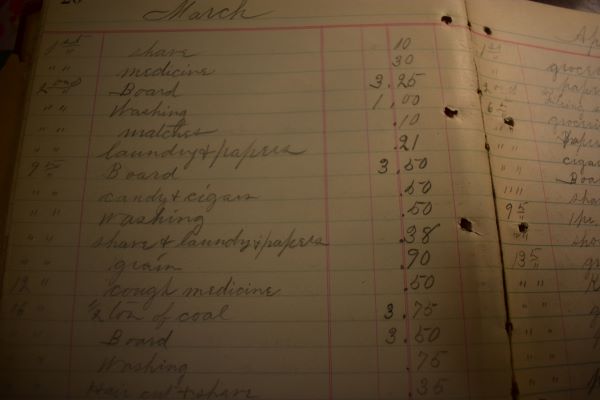 March
1st share 10
" " medicine 30
2nd Board 3.25
" " Washing 1.00
" " matches .10
" " laundry & papers .21
9th Board 3.50
" " candy & cigars .50
" " Washing .50
" " share & laundry & papers .38
" " grain .90
12 " cough medicine .50
16 " 1/2 ton of coal 3.75
" " Board 3.50
" " Washing 75
Hair cut & share 35
Ap
1st
grocer
paper
groceri
papers
cigar
Boar
" " sha
9th 1 pr.
" " sho
13th gr
" " K
" "
" "
" "